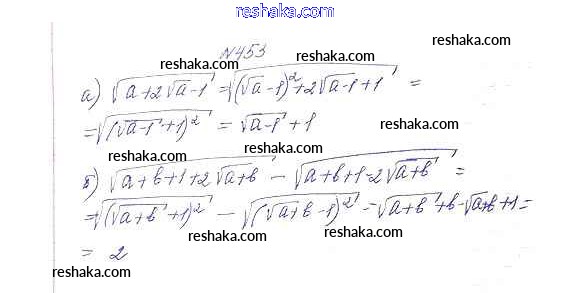 reshaka.com
№453
reshaka.com
reshaka.com
reshaka.com
а) √(a+2√(a-1)) = √((√a-1)²+2√(a-1)+1) =
= √((√(a-1)+1)²) = √(a-1)+1
reshaka.com
reshaka.com
reshaka.com
б) √(a+b+1+2√(a+b)) - √(a+b+1-2√(a+b)) =
= √((√(a+b)+1)²) - √((√(a+b)-1)²) = √(a+b)+b-√(a+b)+1 =
reshaka.com
reshaka.com
= 2
reshaka.com